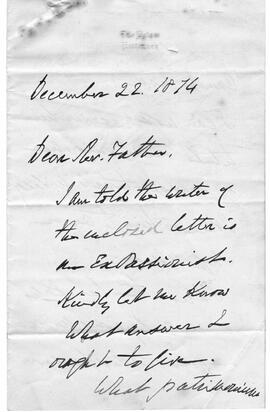 December 22. 1874
Dear Rev. Father,
I am told the writer of
the enclosed letter is
an Ex Passionist.
Kindly let me know
what answer I
ought to give.
What